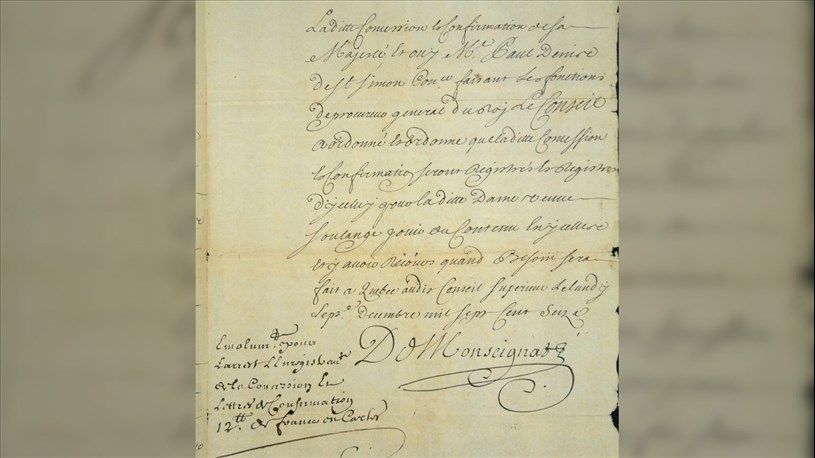 Ladite Concession & Confirmation de Sa
Majesté et ouy Mr. Paul Denis
de St Simon Con.er faisant les fonctions
de procureur general du Roy Le Conseil
a ordonné et ordonne que ladite Concession
& Confirmation seront Registrés Es Registres
d'jcelluy pour ladite Dame veuve
Soulange jouir du Contenu En jcelles
et y avoir Recours quand Besoin sera
fait a Quebec audit Conseil Superieur Le Lundy
Sept.e Decembre mil Sept Cent Seize
DeMonseignat
Emolum.ts pour
Larrest LEnregistrem.t
de la Concession &
Lettres de Confirmation
12.tt de france en Cartes